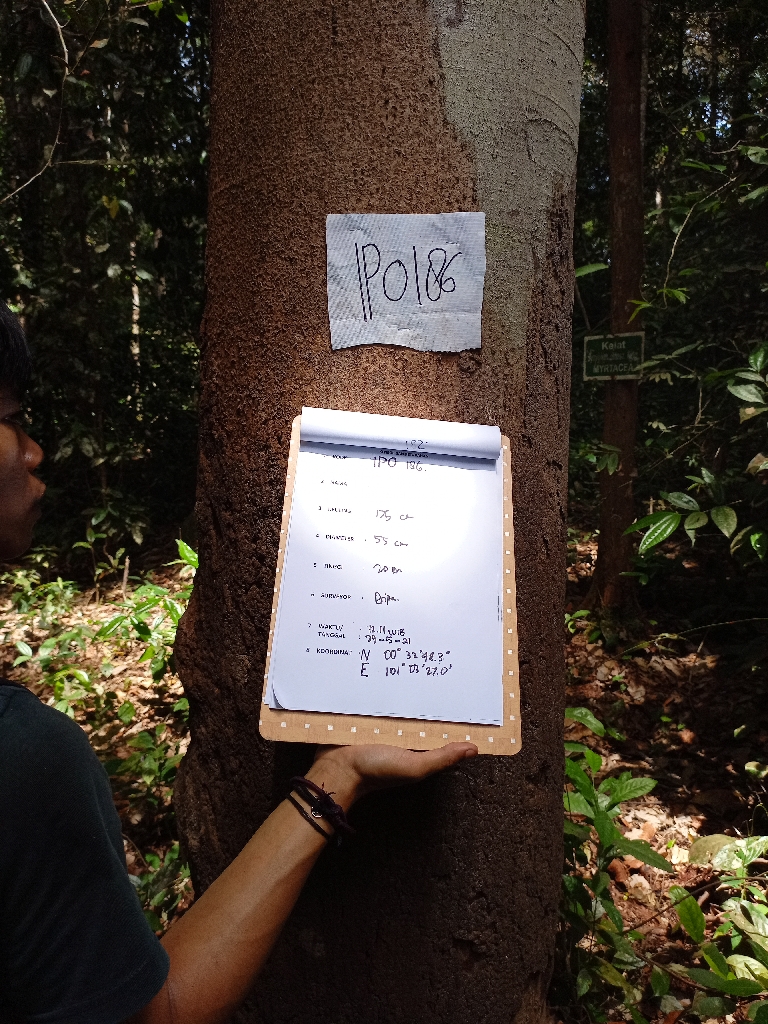 IPO186
Kelat
MYRTACEA
IPO 186.
2 NAMA
3 KELILING 175 cm
4 DIAMETER : 55 cm
5 TINGGI 20 m
6 SURVEYOR :
7 WAKTU/ : WIB
TANGGAL : 29-5-21
8 KOORDINAT : N 00° 32' 48.3"
E 101° 03' 27.0"